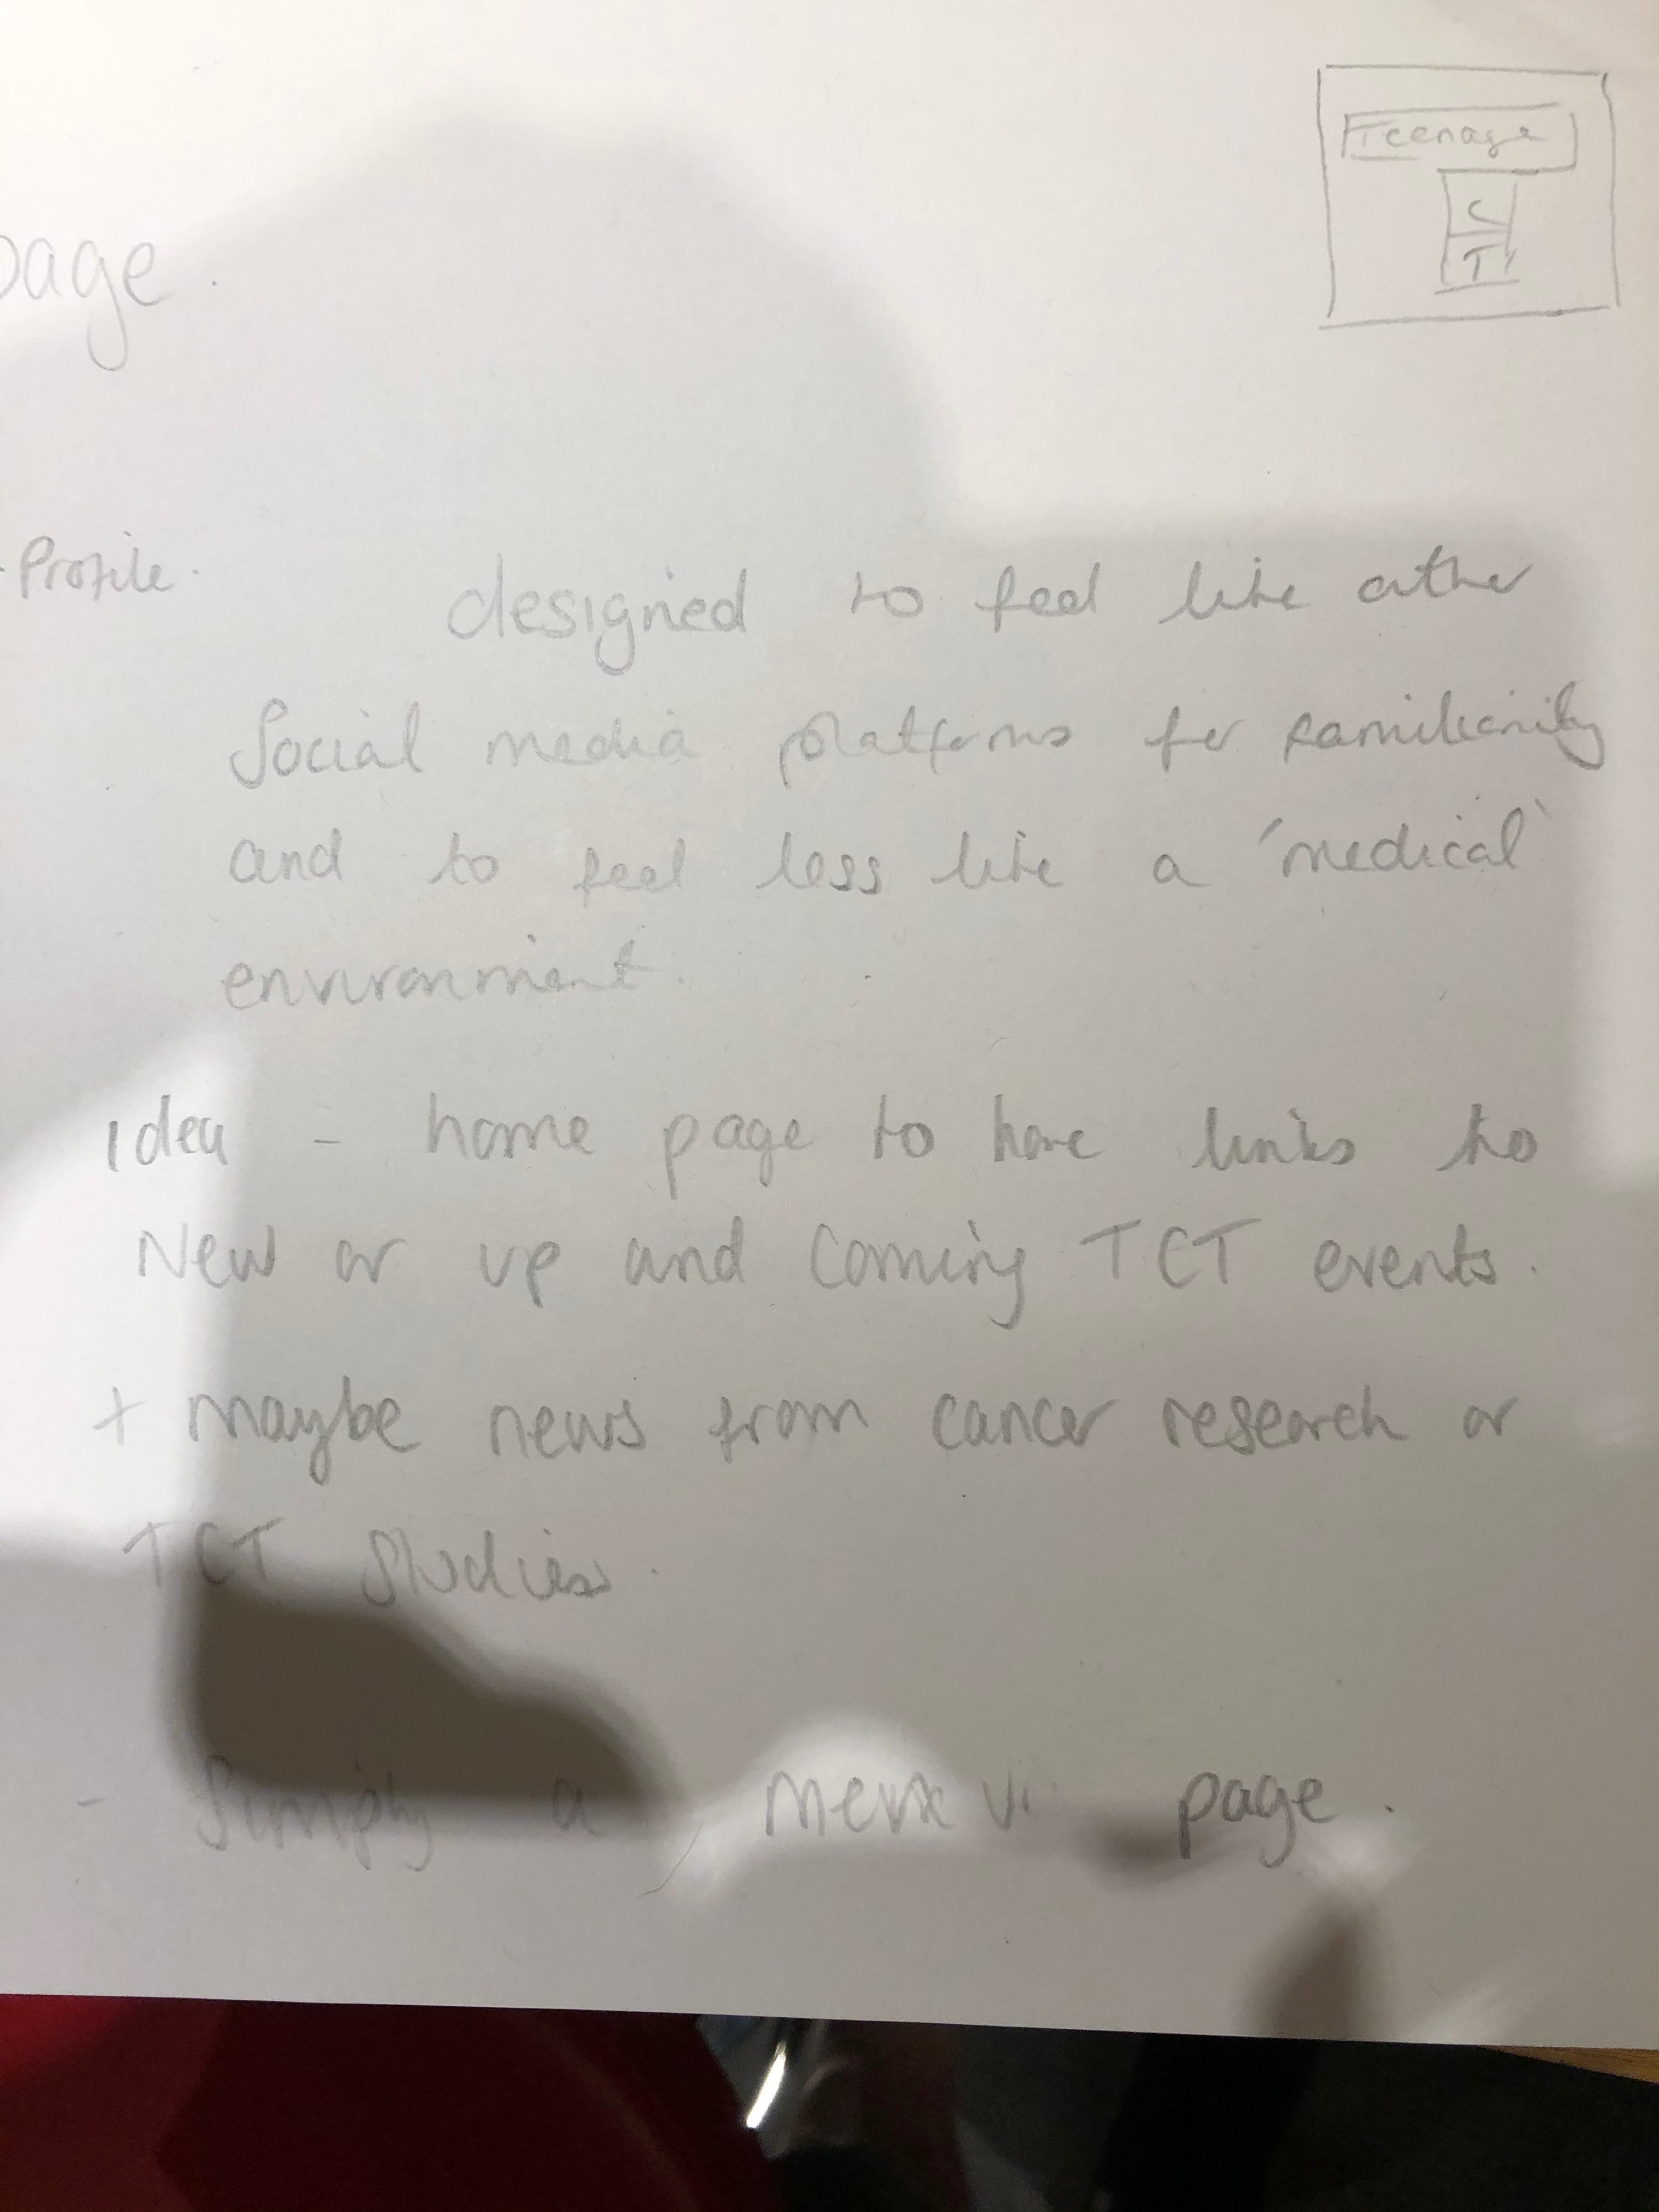 Teenage
C
T
page.
- Profile.
designed to feel like other
Social media platforms for familiarity
and to feel less like a 'medical'
environment.
Idea - home page to have links to
New or up and coming TCT events.
+ maybe news from cancer research or
TCT studies.
- Simply a page.